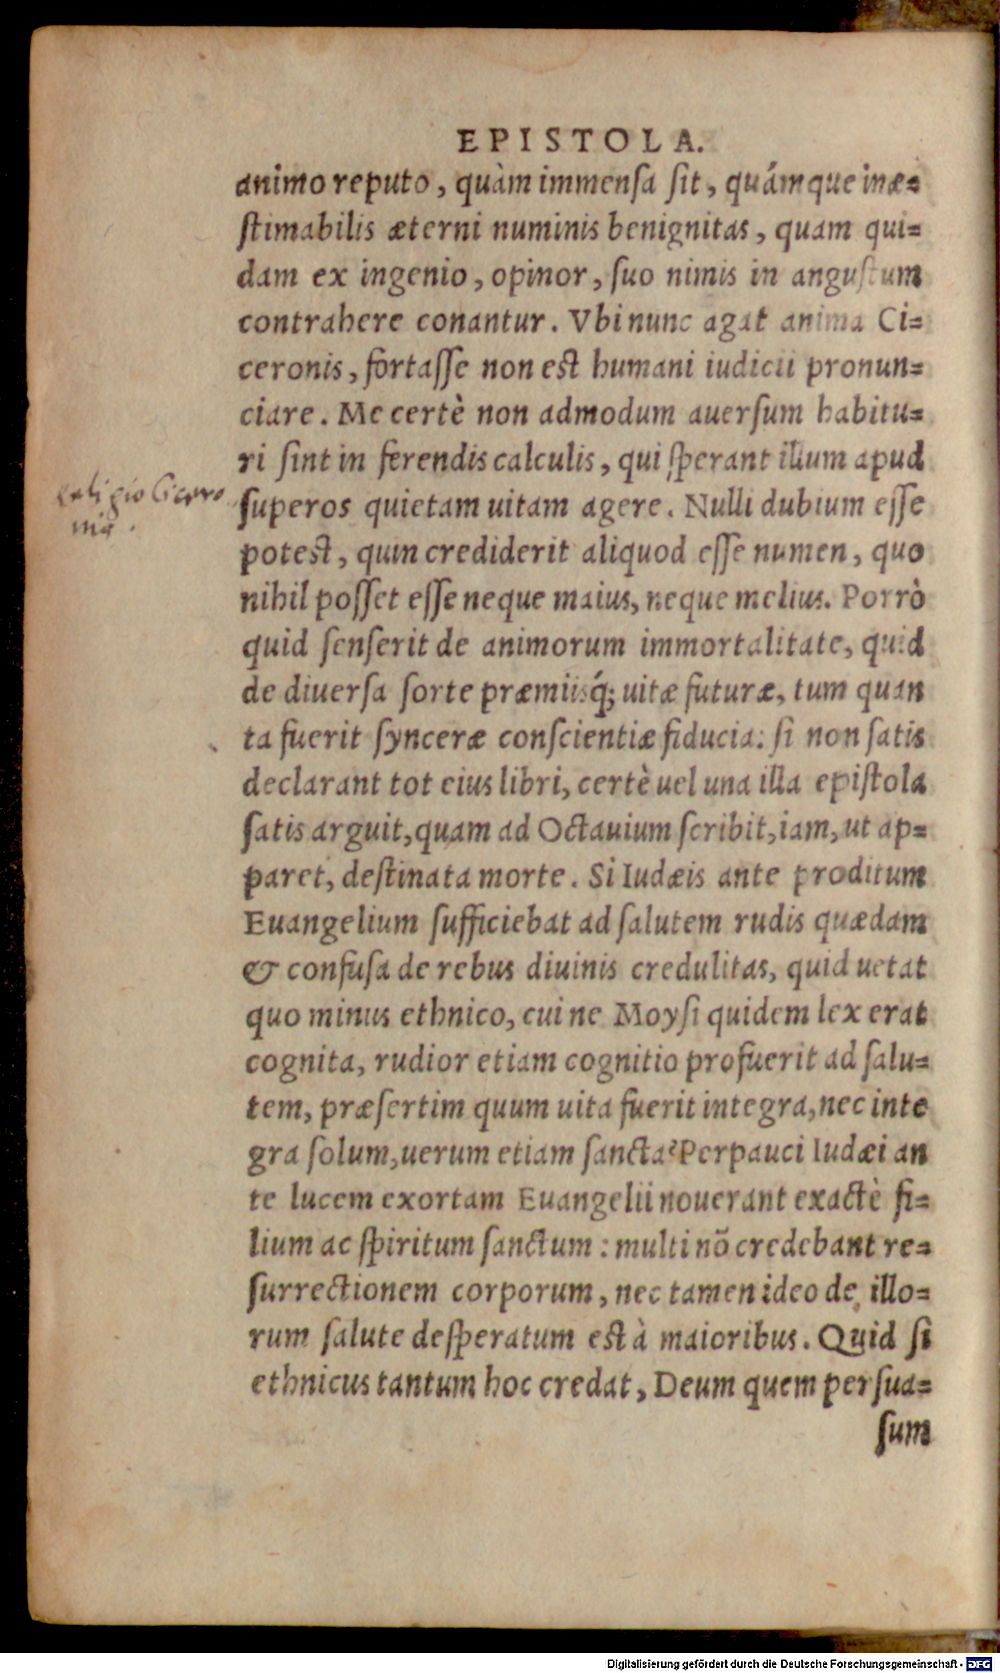 EPISTOLA.
animo reputo, quàm immensa sit, quámque inæ=
stimabilis æterni numinis benignitas, quam qui=
dam ex ingenio, opinor, suo nimis in angustum
contrahere conantur. Vbi nunc agat anima Ci=
ceronis, fortasse non est humani iudicii pronun=
ciare. Me certè non admodum auersum habitu=
ri sint in ferendis calculis, qui sperant illum apud
superos quietam uitam agere. Nulli dubium esse
potest, quin crediderit aliquod esse numen, quo
nihil posset esse neque maius, neque melius. Porrò
quid senserit de animorum immortalitate, quid
de diuersa sorte præmiisq́; uitæ futuræ, tum quan
ta fuerit synceræ conscientiæ fiducia: si non satis
declarant tot eius libri, certè uel una illa epistola
satis arguit, quam ad Octauium scribit, iam, ut ap=
paret, destinata morte. Si Iudæis ante proditum
Euangelium sufficiebat ad salutem rudis quædam
& confusa de rebus diuinis credulitas, quid uetat
quo minus ethnico, cui ne Moysi quidem lex erat
cognita, rudior etiam cognitio profuerit ad salu=
tem, præsertim quum uita fuerit integra, nec inte
gra solum, uerum etiam sancta? Perpauci Iudæi an
te lucem exortam Euangelii nouerant exactè fi=
lium ac spiritum sanctum: multi nō credebant re=
surrectionem corporum, nec tamen ideo de illo=
rum salute desperatum est à maioribus. Quid si
ethnicus tantum hoc credat, Deum quem persua=
sum
Religio Cicero
nis.
Digitalisierung gefördert durch die Deutsche Forschungsgemeinschaft - DFG